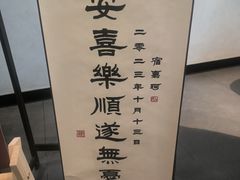 安喜樂順遂無憂
二〇二三年十月十三日
宿嘉珂